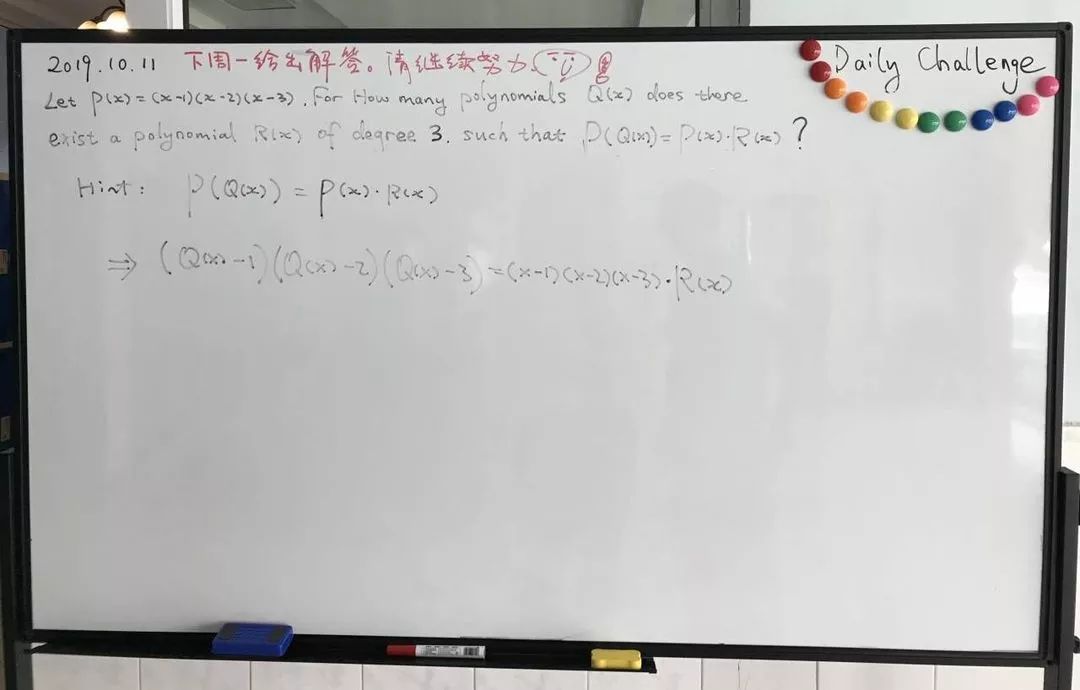 2019.10.11 下周一给出解答。请继续努力
Daily Challenge
Let P(x)=(x-1)(x-2)(x-3). For How many polynomials Q(x) does there
exist a polynomial R(x) of degree 3. such that P(Q(x))=P(x)·R(x)?
Hint: P(Q(x)) = P(x)·R(x)
⇒ (Q(x)-1)(Q(x)-2)(Q(x)-3)=(x-1)(x-2)(x-3)·R(x)